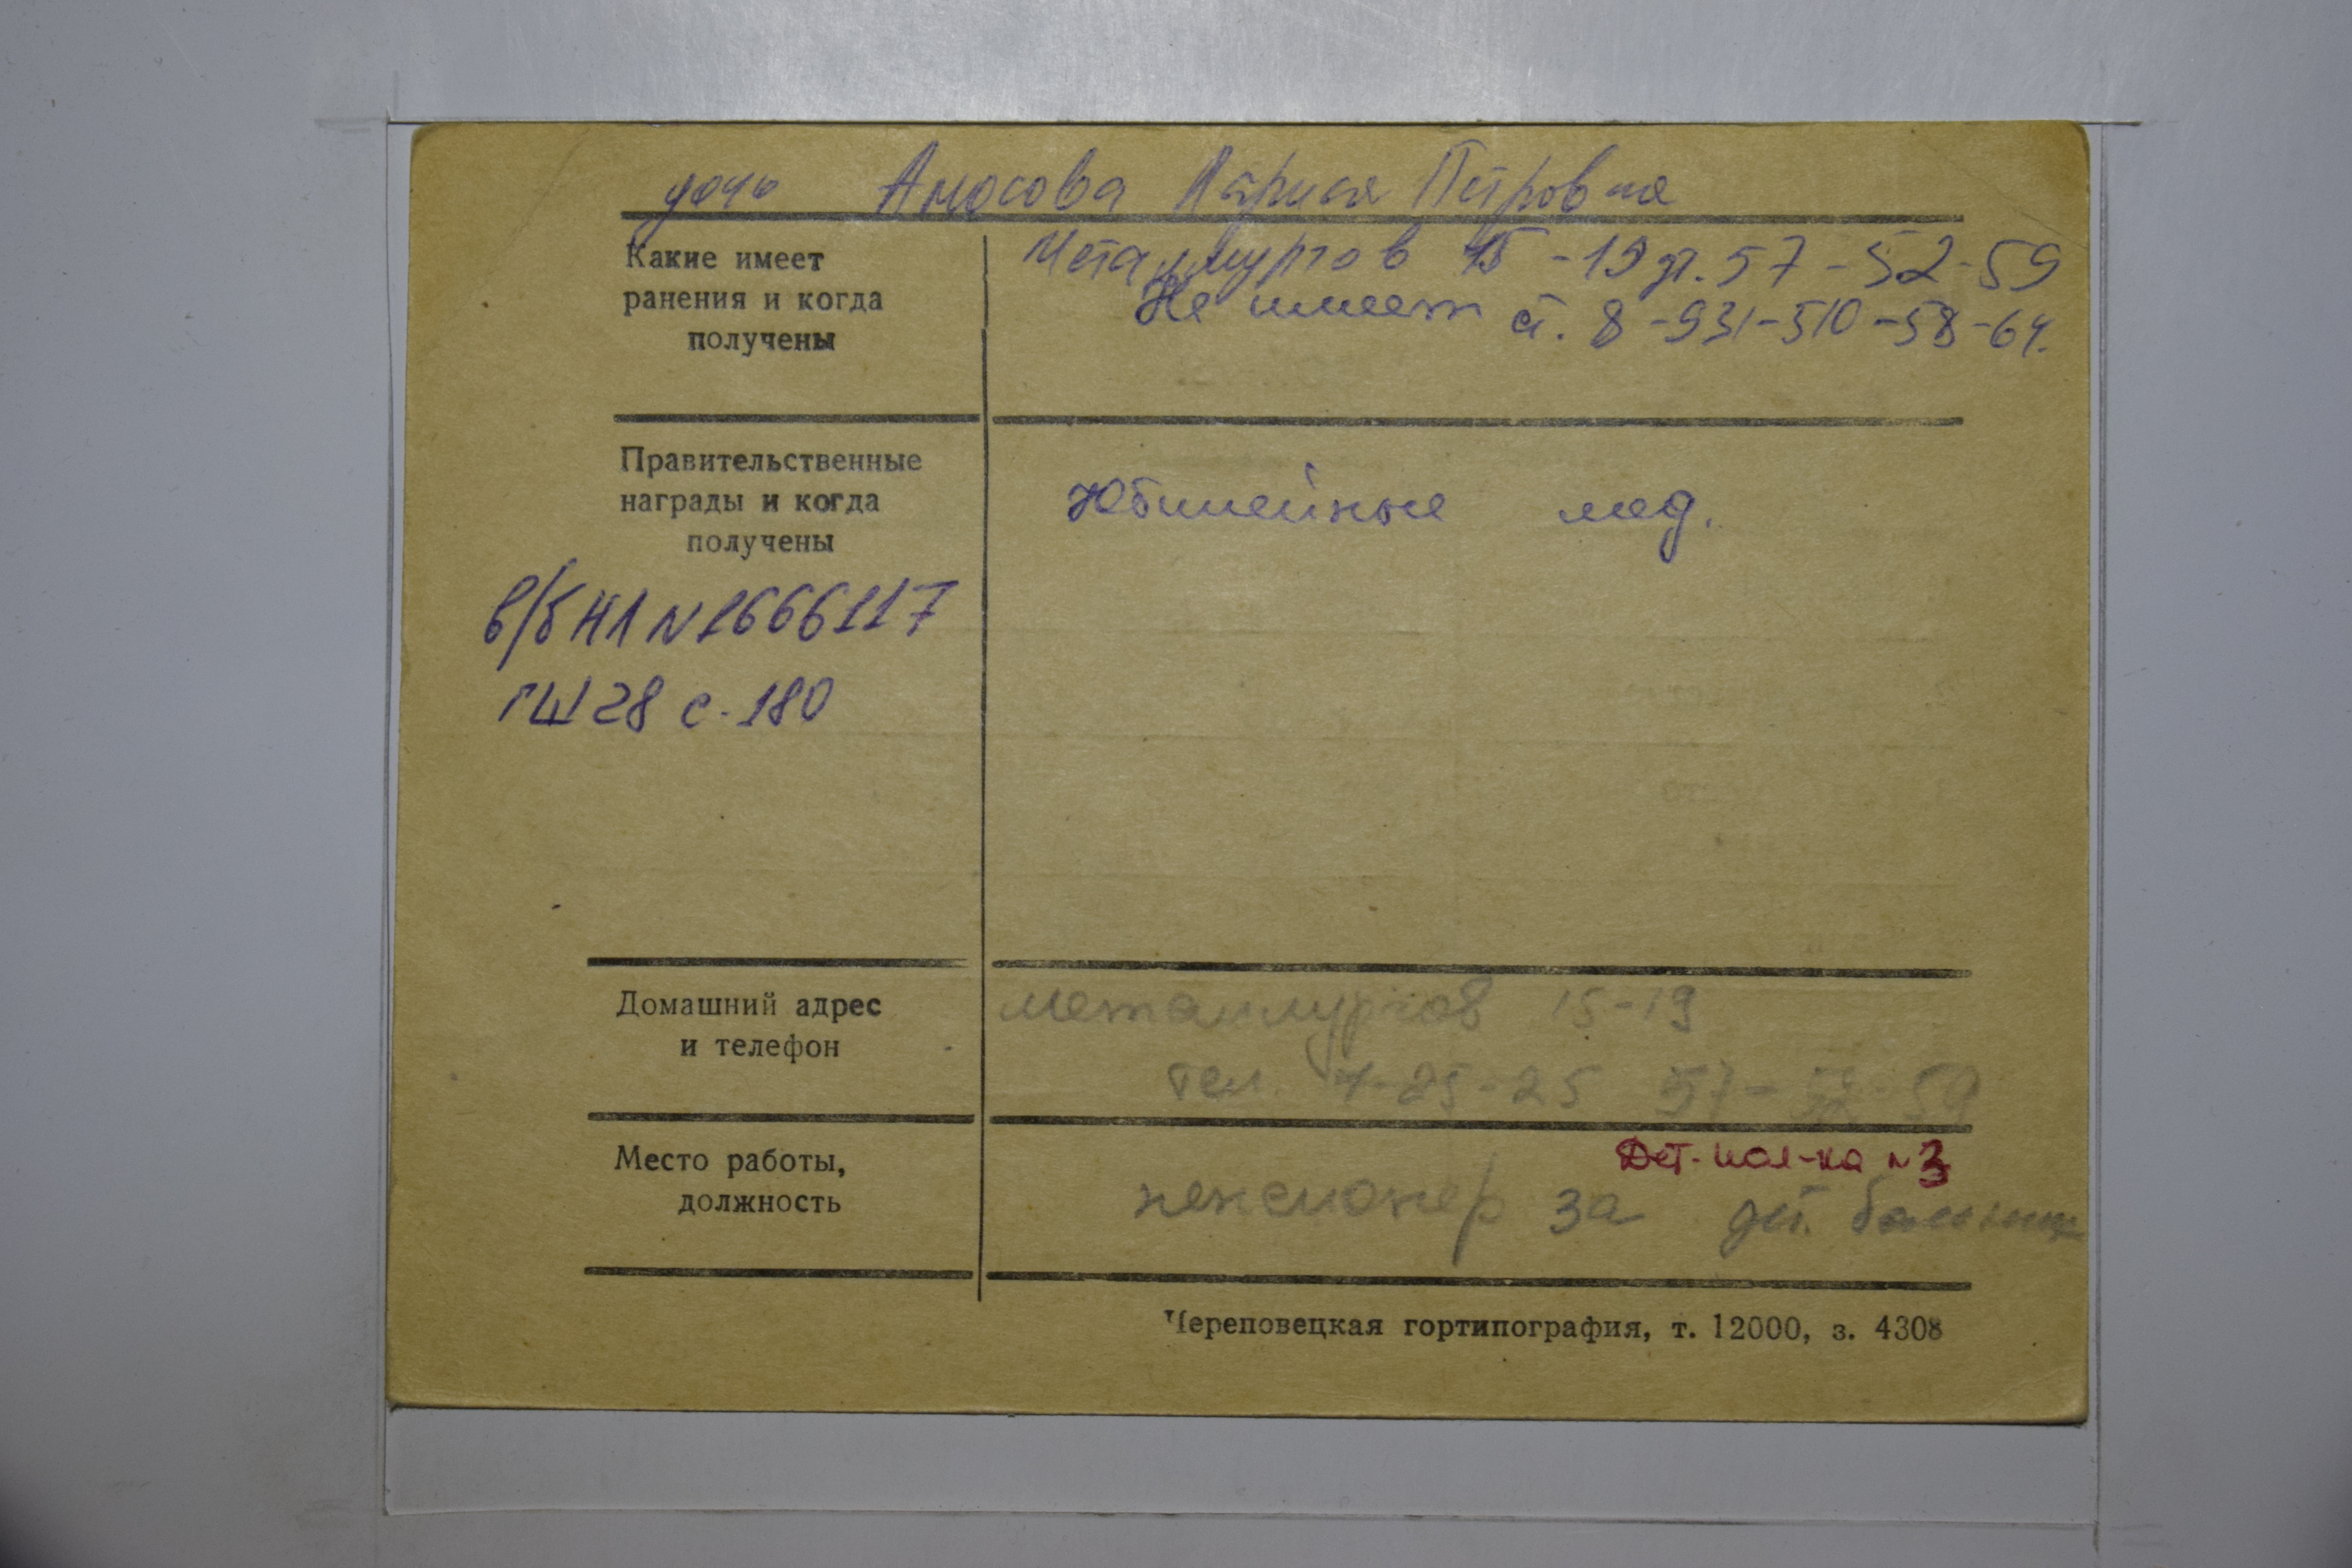 дочь Амосова Лариса Петровна
Какие имеет
ранения и когда
получены
Металлургов 15-19 д.т. 57-52-59
Не имеет с.т. 8-931-510-58-64.
Правительственные
награды и когда
получены
Юбилейные мед.
в/б НЛ N 1666117
ГШ 28 с. 180
Домашний адрес
и телефон
Металлургов 15-19
тел. 7-25-25 57-52-59
Место работы,
должность
Дет. пол-ка N 3
пенсионер за дет. больниц
Череповецкая гортипография, т. 12000, з. 4308